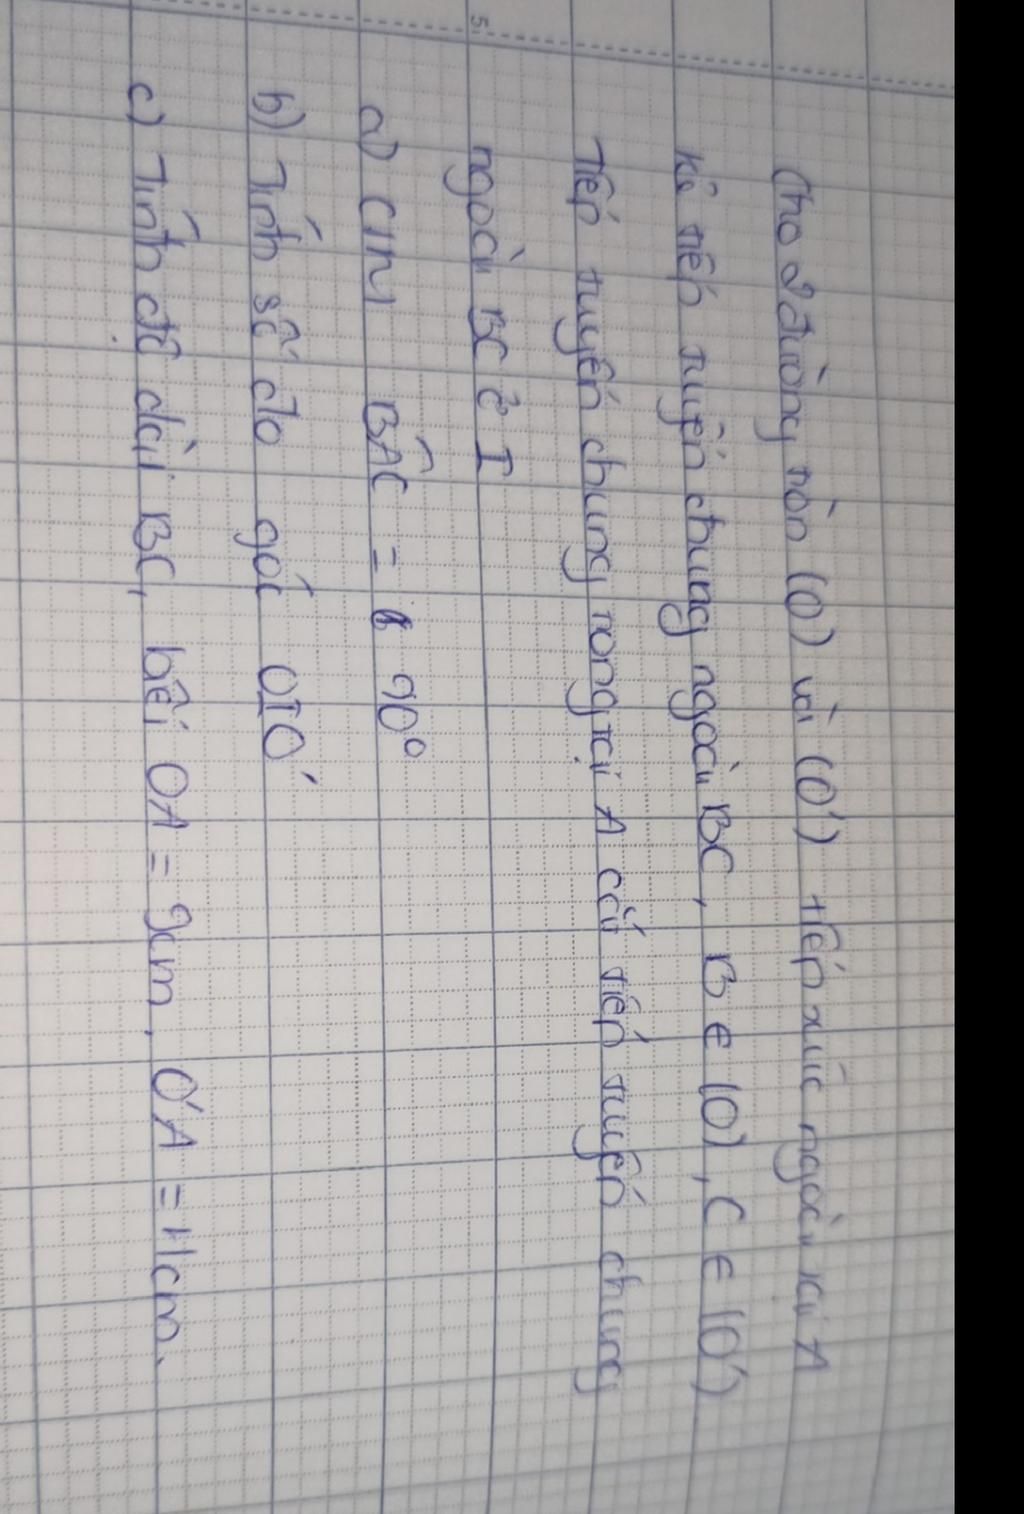 Cho 2 đường tròn (O) và (O') tiếp xúc ngoài tại A
kẻ tiếp tuyến chung ngoài BC, B ∈ (O), C ∈ (O')
Tiếp tuyến chung trong tại A cắt tiếp tuyến chung
ngoài BC ở I
a) CM BÂC = 90°
b) Tính số đo góc OIO'
c) Tính độ dài BC, biết OA = 9cm, O'A = 4cm.
5